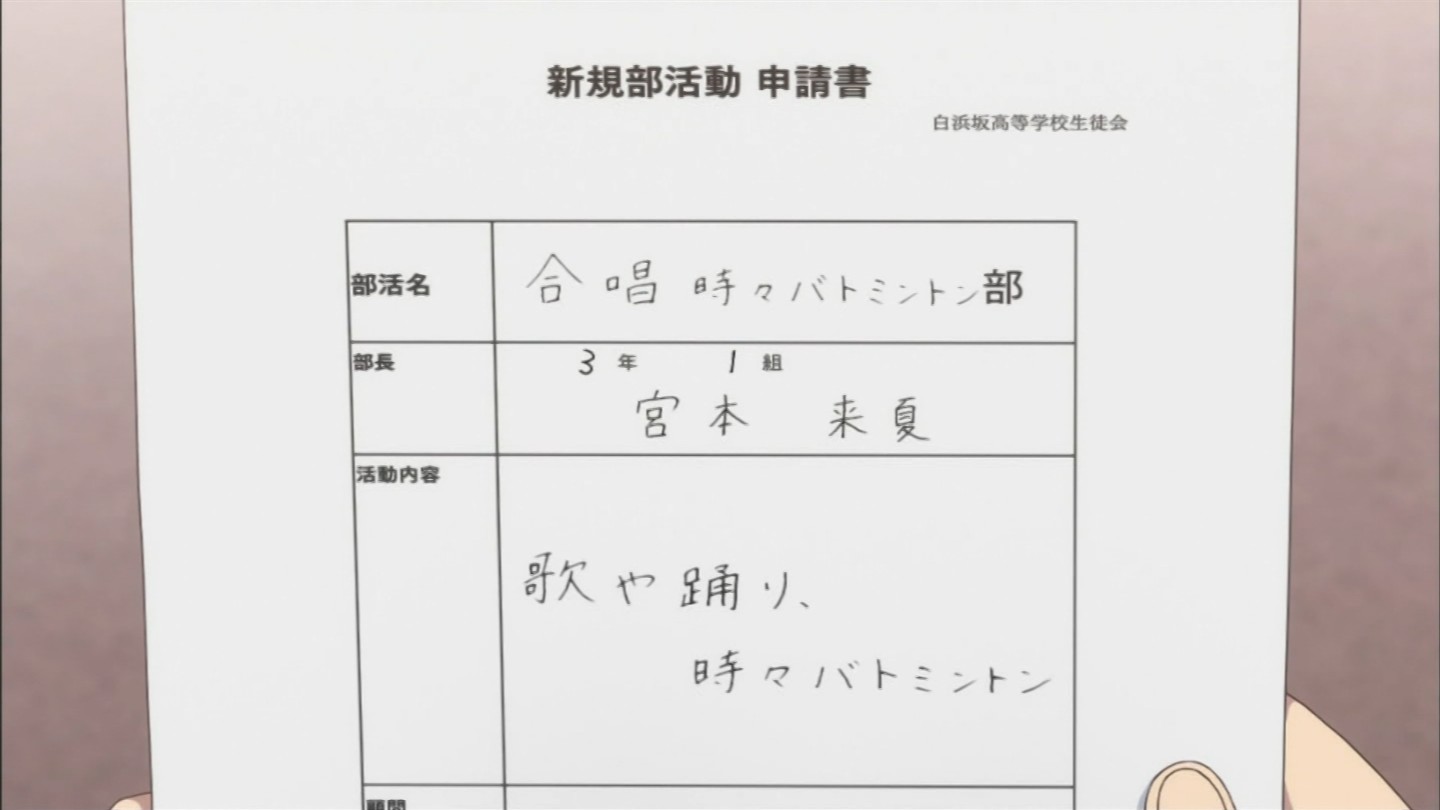 新規部活動 申請書
白浜坂高等学校生徒会
部活名 合唱時々バトミントン部
部長 3年 1組
宮本 来夏
活動内容
歌や踊り、
時々バトミントン
顧問